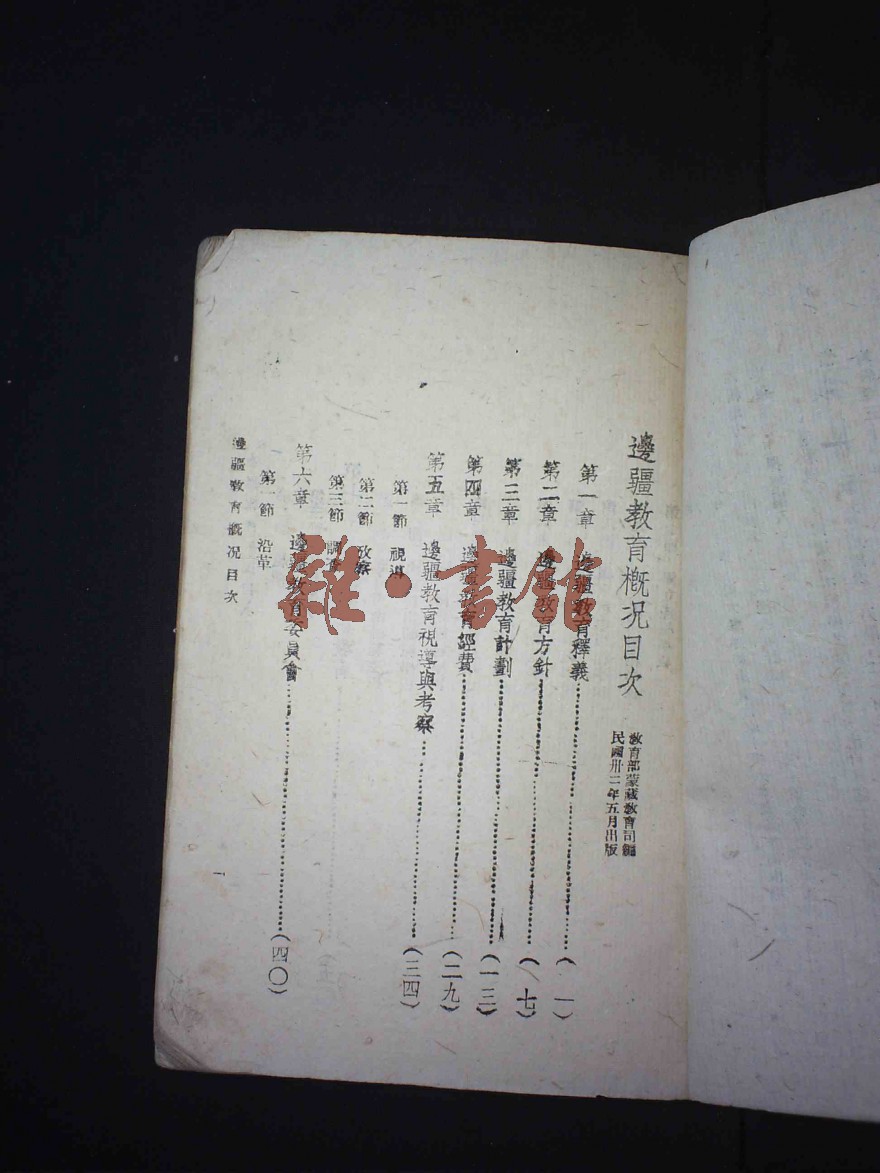 邊疆教育概況目次
教育部蒙藏教育司編
民國卅二年五月出版
第一章 邊疆教育釋義…………(一)
第二章 邊疆教育方針…………(七)
第三章 邊疆教育計劃…………(一三)
第四章 邊疆教育經費…………(二九)
第五章 邊疆教育視導與考察…………(三四)
第一節 視導
第二節 攷察
第三節 調查
第六章 邊疆教育委員會…………(四〇)
第一節 沿革
邊疆教育概況目次
一
雜·書館